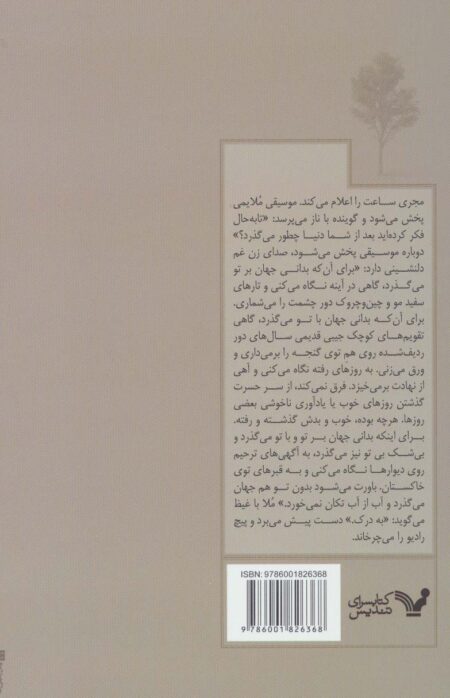 مجری ساعت را اعلام می‌کند. موسیقی مُلایمی
پخش می‌شود و گوینده با ناز می‌پرسد: «تابه‌حال
فکر کرده‌اید بعد از شما دنیا چطور می‌گذرد؟»
دوباره موسیقی پخش می‌شود، صدای زن غم
دلنشینی دارد: «برای آن‌که بدانی جهان بر تو
می‌گذرد، گاهی در آینه نگاه می‌کنی و تارهای
سفید مو و چین‌وچروک دور چشمت را می‌شماری.
برای آن‌که بدانی جهان با تو می‌گذرد، گاهی
تقویم‌های کوچک جیبی قدیمی سال‌های دور
ردیف‌شده روی هم توی گنجه را برمی‌داری و
ورق می‌زنی. به روزهای رفته نگاه می‌کنی و آهی
از نهادت برمی‌خیزد. فرق نمی‌کند، از سر حسرت
گذشتن روزهای خوب یا یادآوری ناخوشی بعضی
روزها. هرچه بوده، خوب و بدش گذشته و رفته.
برای اینکه بدانی جهان بر تو و با تو می‌گذرد و
بی‌شک بی تو نیز می‌گذرد، به آگهی‌های ترحیم
روی دیوارها نگاه می‌کنی و به قبرهای توی
خاکستان. باورت می‌شود بدون تو هم جهان
می‌گذرد و آب از آب تکان نمی‌خورد.» مُلا با غیظ
می‌گوید: «به درک.» دست پیش می‌برد و پیچ
رادیو را می‌چرخاند.
ISBN: 9786001826368
9 786001 826368
کتابسرای
تندیس